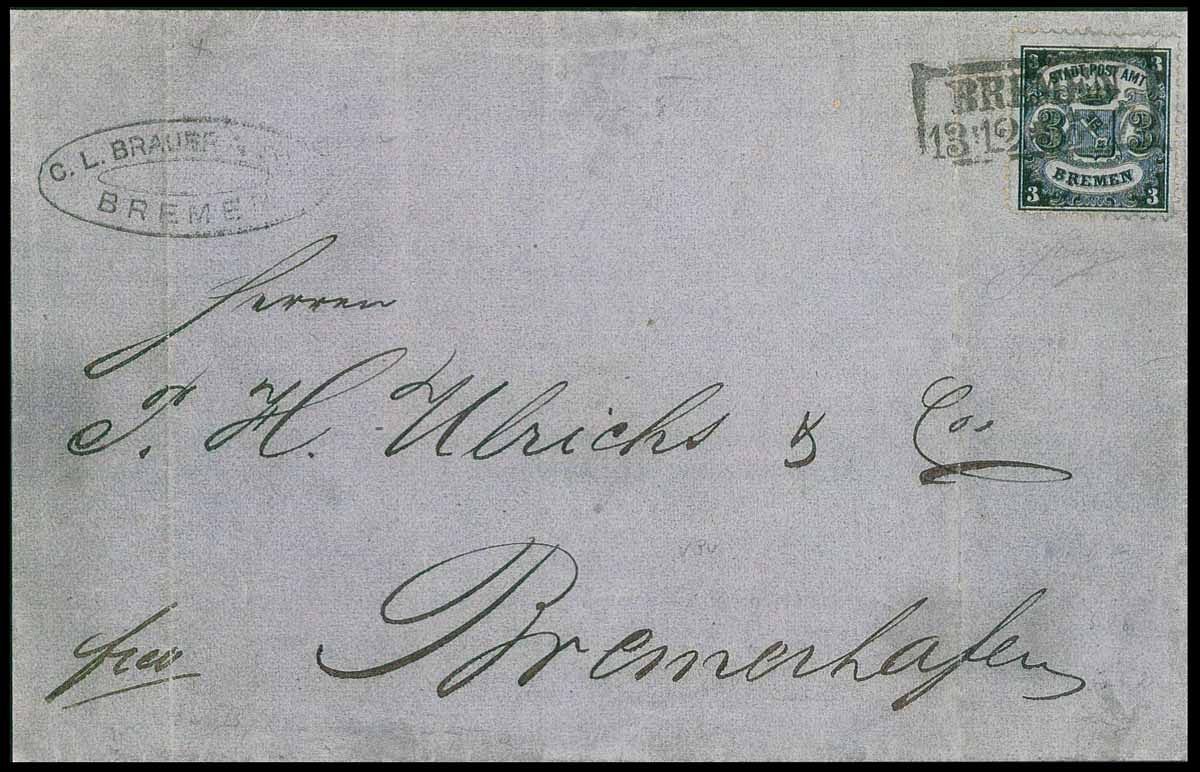 C. L. BRAUER
BREMEN
BREMEN
13:12
3 3
STADT POST AMT
3 3
BREMEN
3 3
Herren
F. H. Ulrichs & Co.
franco
Bremerhafen